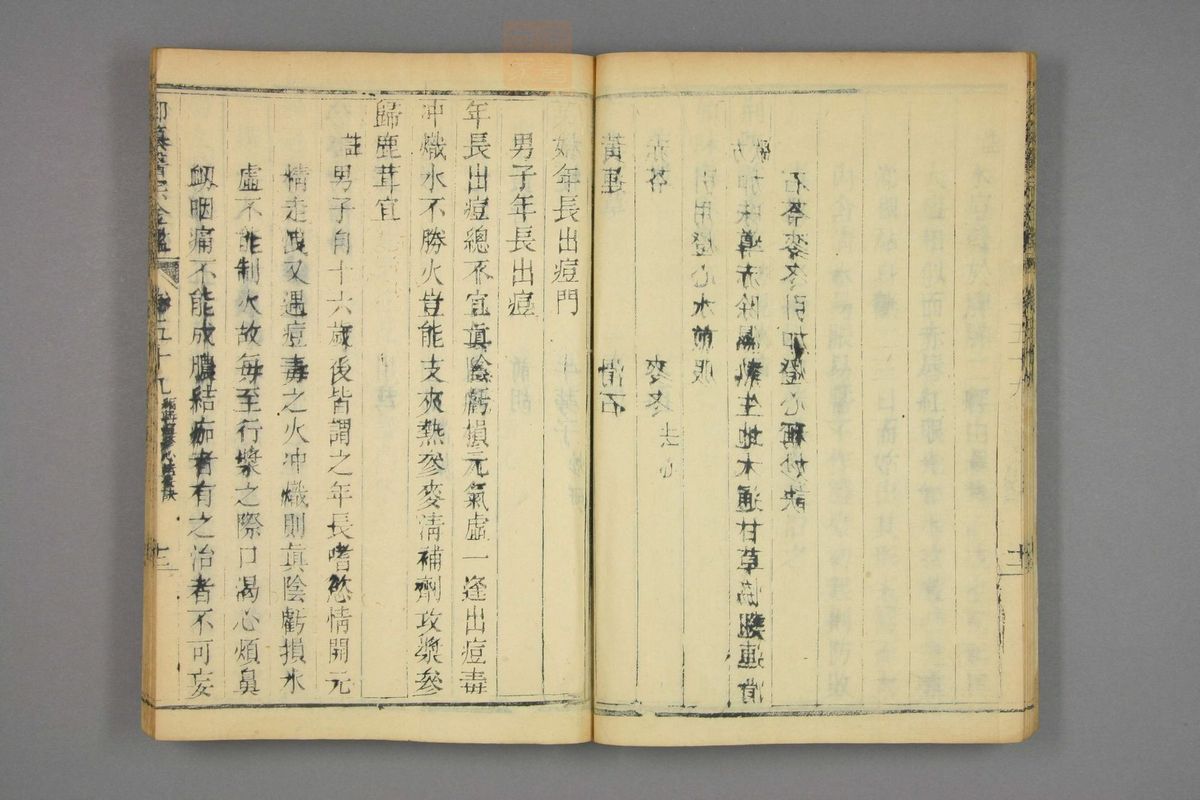 黃連　滑石
赤苓　麥冬去心
引用燈心水煎服
歌方
加味導赤除濕熱生地木通甘草梢胆連滑
石苓麥冬引加燈心稱妙訣
女年長出痘門
男子年長出痘
年長出痘總不宜眞陰虧損元氣虛一逢出痘毒
冲熾水不勝火豈能支爽熱參麥淸補劑攻漿參
歸鹿茸宜
註男子自十六歲後皆謂之年長嗜慾情開元
精走洩又遇痘毒之火冲熾則眞陰虧損水
虛不能制火故每至行漿之際口渴心煩鼻
衂咽痛不能成膿結痂者有之治者不可妄
御纂醫宗金鑑
卷五十九